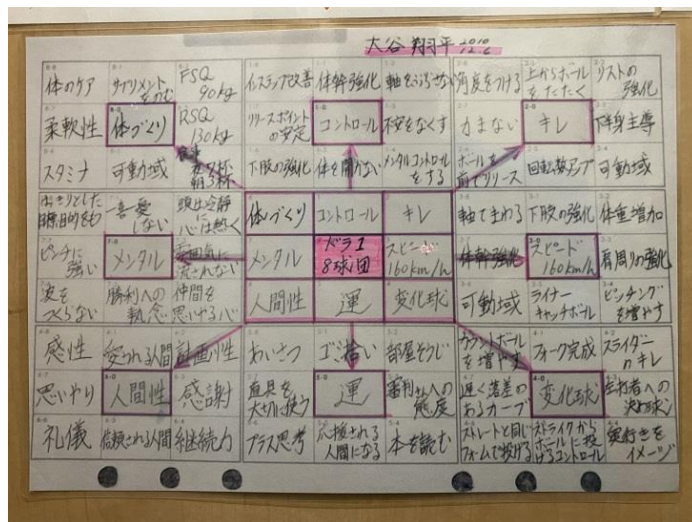 大谷 翔平 2010 12.6
体のケア
サプリメント
をのむ
FSQ
90kg
インステップ改善
体幹強化
軸をぶらさない
角度をつける
上からボール
をたたく
リストの
強化
柔軟性
体づくり
RSQ
130kg
リリースポイント
の安定
コントロール
不安をなくす
力まない
キレ
下半身主導
スタミナ
可動域
食事
夜7杯
朝3杯
下肢の強化
体を開かない
メンタルコントロール
をする
ボールを
前でリリース
回転数アップ
可動域
はっきりとした
目標、目的をもつ
一喜一憂
しない
頭は冷静に
心は熱く
体づくり
コントロール
キレ
軸でまわる
下肢の強化
体重増加
ピンチに
強い
メンタル
雰囲気に
流されない
メンタル
ドラ1
8球団
スピード
160km/h
体幹強化
スピード
160km/h
肩周りの強化
波を
つくらない
勝利への
執念
仲間を
思いやる心
人間性
運
変化球
可動域
ライナー
キャッチボール
ピッチング
を増やす
感性
愛される人間
計画性
あいさつ
ゴミ拾い
部屋そうじ
カウントボール
を増やす
フォーク完成
スライダー
のキレ
思いやり
人間性
感謝
道具を
大切に使う
運
審判さんへの
態度
遅く落差の
あるカーブ
変化球
左打者への
決め球
礼儀
信頼される人間
継続力
プラス思考
応援される
人間になる
本を読む
ストレートと同じ
フォームで投げる
ストライクから
ボールに投
げるコントロール
奥行きを
イメージ